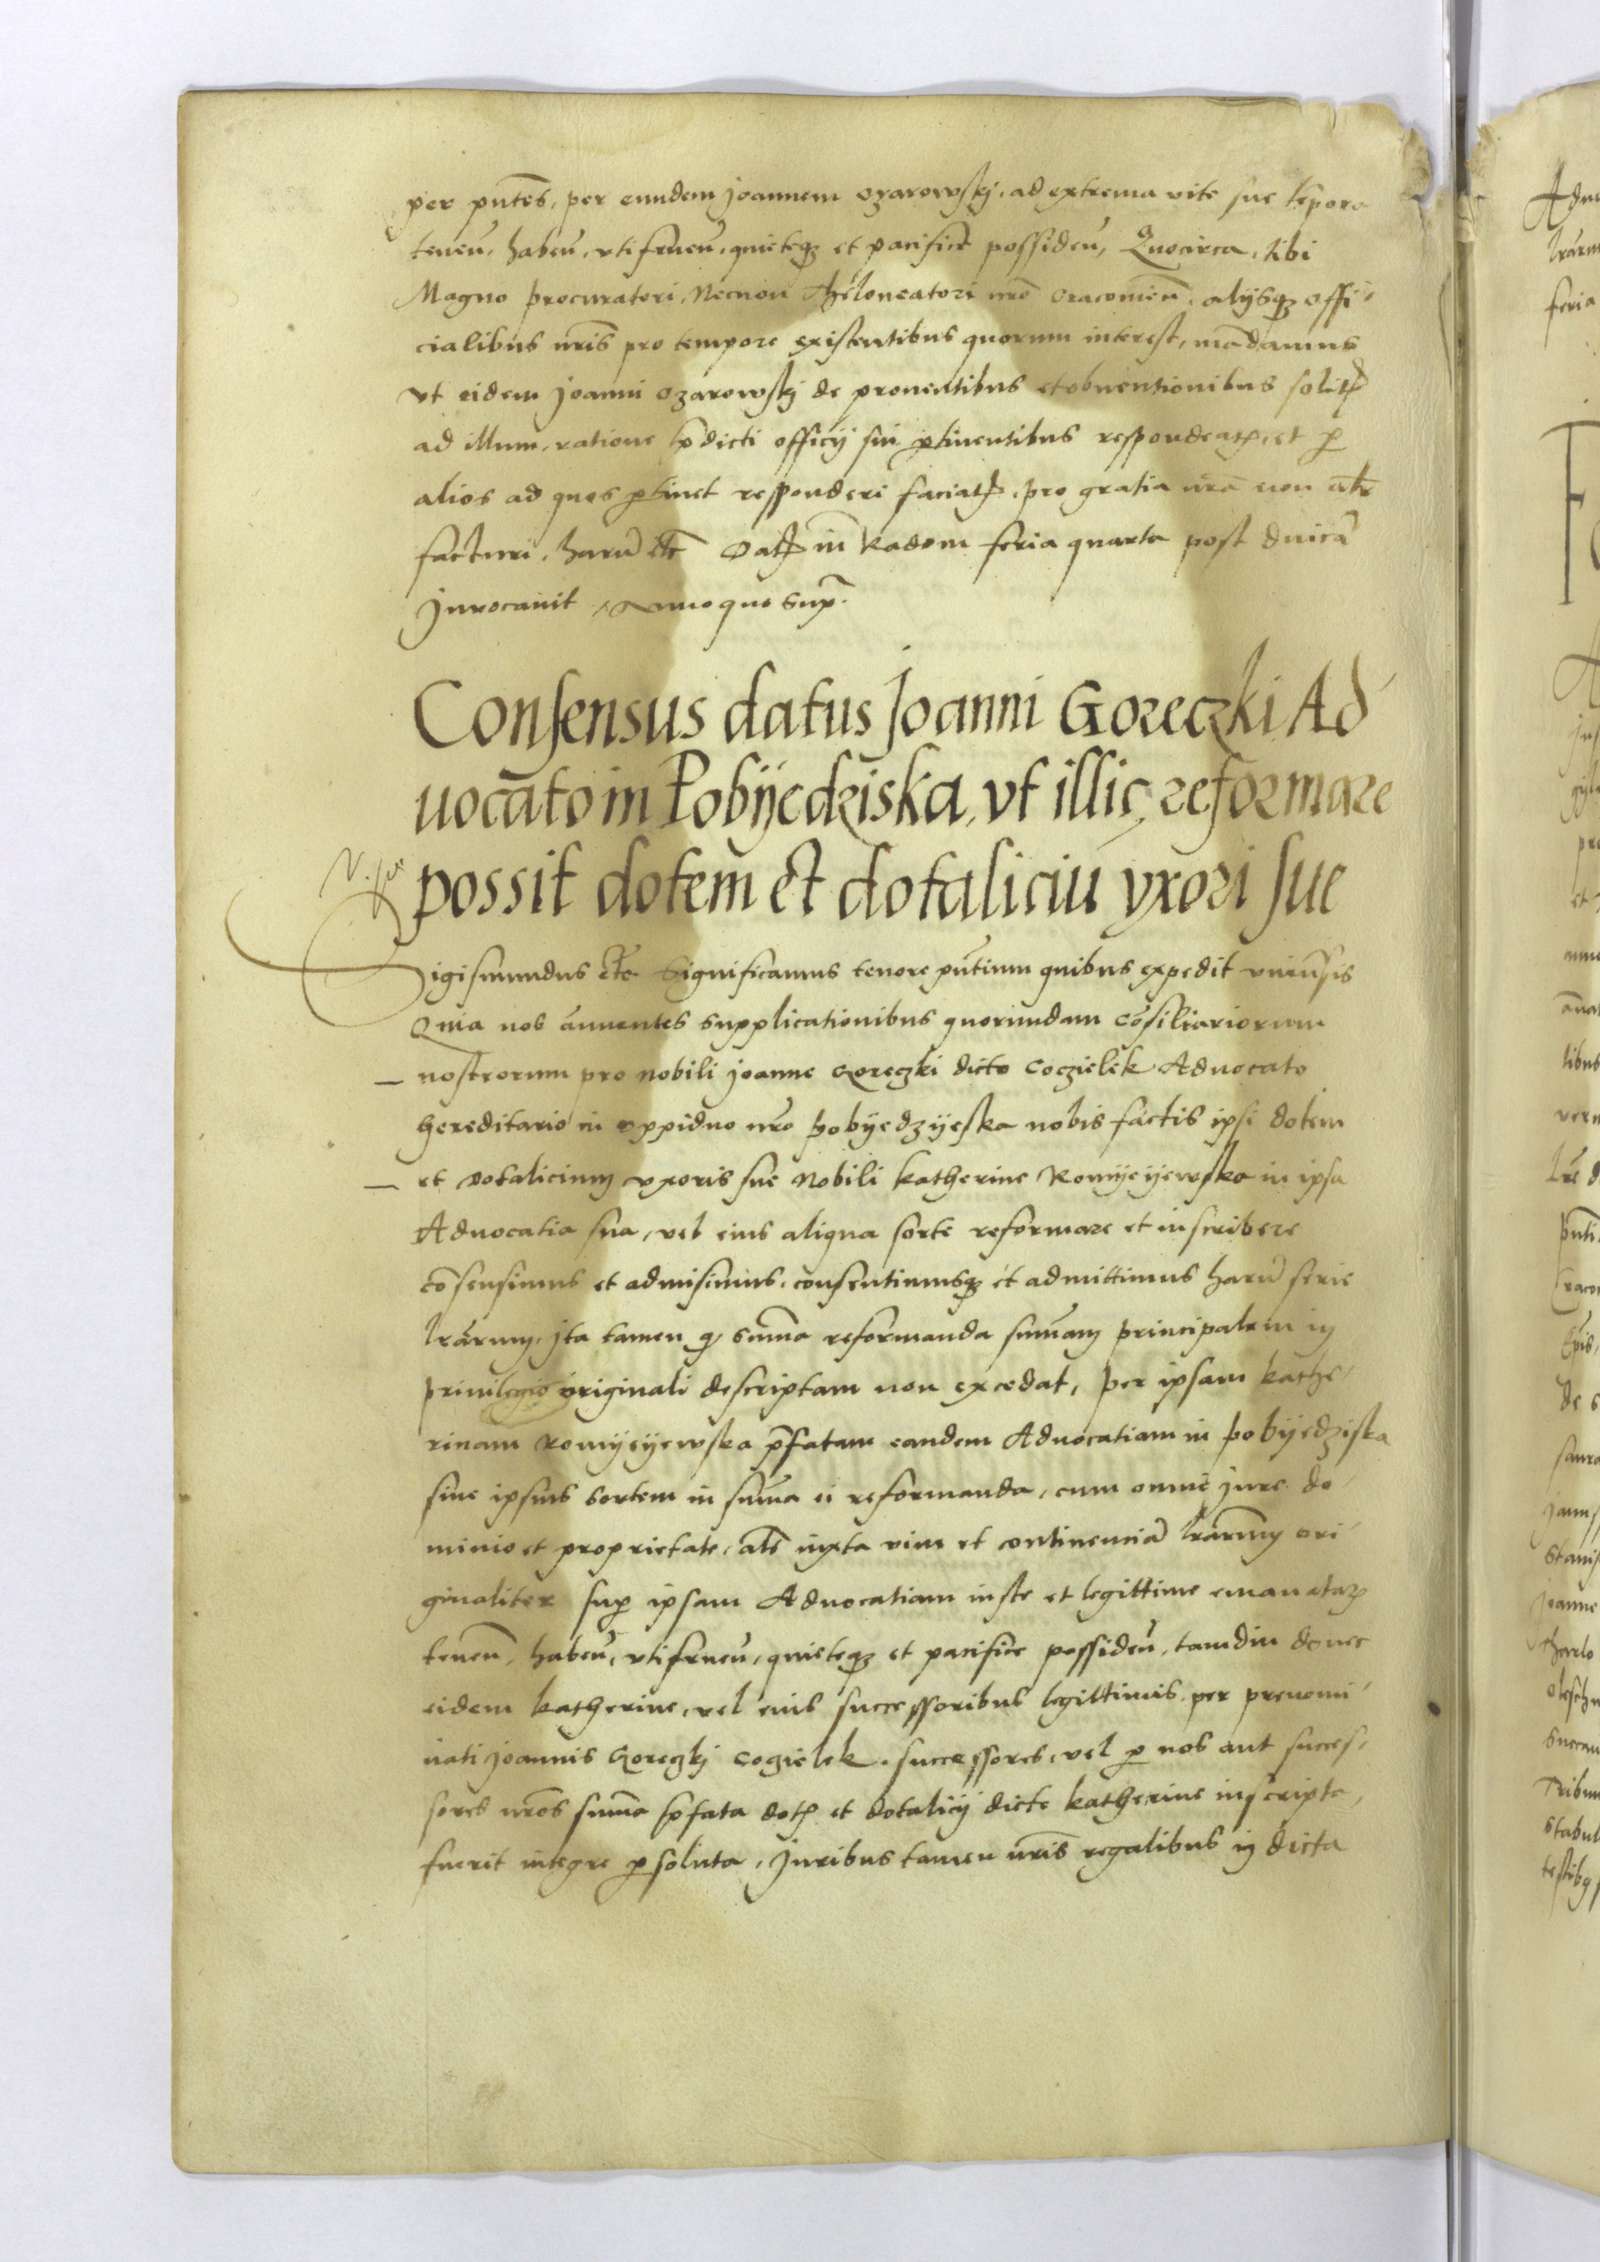 per pn̄tes, per eundem Joannem Ozarowskj, ad extrema vite sue tp̄ora
teneñ, habeñ, vtifrueñ, quieteqȝ et pacifice possideñ, Quocirca, tibi
Magno procuratori, Necnon Theloneatori nr̄o Cracomieñ, alijsqȝ offi-
cialibus nr̄is pro tempore existentibus quorum interest, mādamus
vt eidem Joanni Ozarowskj de prouentibus et obuentionibus solitꝭ
ad illum, ratione p̄dicti officij sui ꝑtinentibus respondeatꝭ, et ꝑ
alios ad quos ꝑtinet responderi faciatꝭ, pro gratia nr̄a non alr̄
facturi, harū etc̄ Datꝭ in Radom feria quarta post dnicā
Jnvocauit, Anno quo sup̄.
Consensus datus Joanni Goreczki Ad
uocato in Pobÿedziska, vt illic reformare
possit dotem et dotaliciū vxori sue
Sigismundus etc̄ Significamus tenore pn̄tium quibus expedit vniuersis
Quia nos annuentes supplicationibus quorundam cōsiliariorum
nostrorum pro Nobili Joanne Goreczki dicto Coczielek Aduocato
hereditario in oppiduo nr̄o Pobÿedzÿeska nobis factis ipsi dotem
et dotalicium vxoris sue Nobili Katherine Romÿeÿewska in ipsa
Aduocatia sua, vel eius aliqua sorte reformare et inscribere
cōsensimus et admisimus, consentimusqȝ et admittimus harū serie
lr̄arum, Jta tamen qȝ sum̄a reformanda sum̄am principalem in
priuilegio originali descriptam non excedat, per ipsam Kathe-
rinam Romÿeÿewska p̄fatam eandem Aduocatiam in Pobÿedziska
siue ipsius sortem in sum̄a ei reformanda, cum omni jure do-
minio et proprietate, al̄s iuxta vim et continenciā lr̄arum ori-
ginaliter sup̄ ipsam Aduocatiam iuste et legittime emanatarꝭ
teneñ, habeñ, vtifrueñ, quieteqȝ et pacifice possideñ, tamdiu donec
eidem Katherine, vel eius successoribus legittimis, per prenomi-
nati Joannis Goreczkj Cogielek, successores, vel ꝑ nos aut succes-
sores nr̄os sum̄a p̄fata dotꝭ et dotalicij dicte Katherine inscripta,
fuerit integre ꝑsoluta, Juribus tamen nr̄is regalibus in dicta